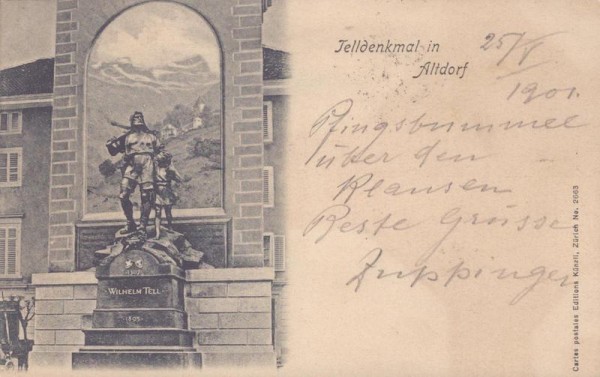 Telldenkmal in
Altdorf
25/V
1901.
Pfingsbummel
über den
Klausen
Beste Grüsse
Zuppinger
WILHELM TELL
Cartes postales Editions Künzli, Zürich No. 2663